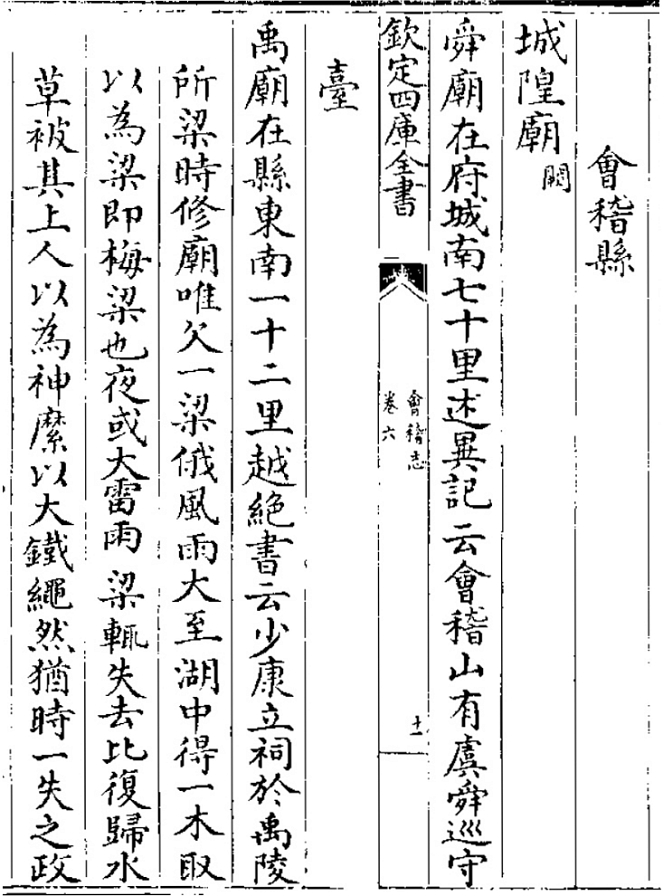 會稽縣
城隍廟闕
舜廟在府城南七十里述異記云會稽山有虞舜巡守
欽定四庫全書
會稽志
卷六
十一
臺
禹廟在縣東南一十二里越絶書云少康立祠於禹陵
所梁時修廟唯欠一梁俄風雨大至湖中得一木取
以為梁即梅梁也夜或大雷雨梁輒失去比復歸水
草被其上人以為神縻以大鐵繩然猶時一失之政